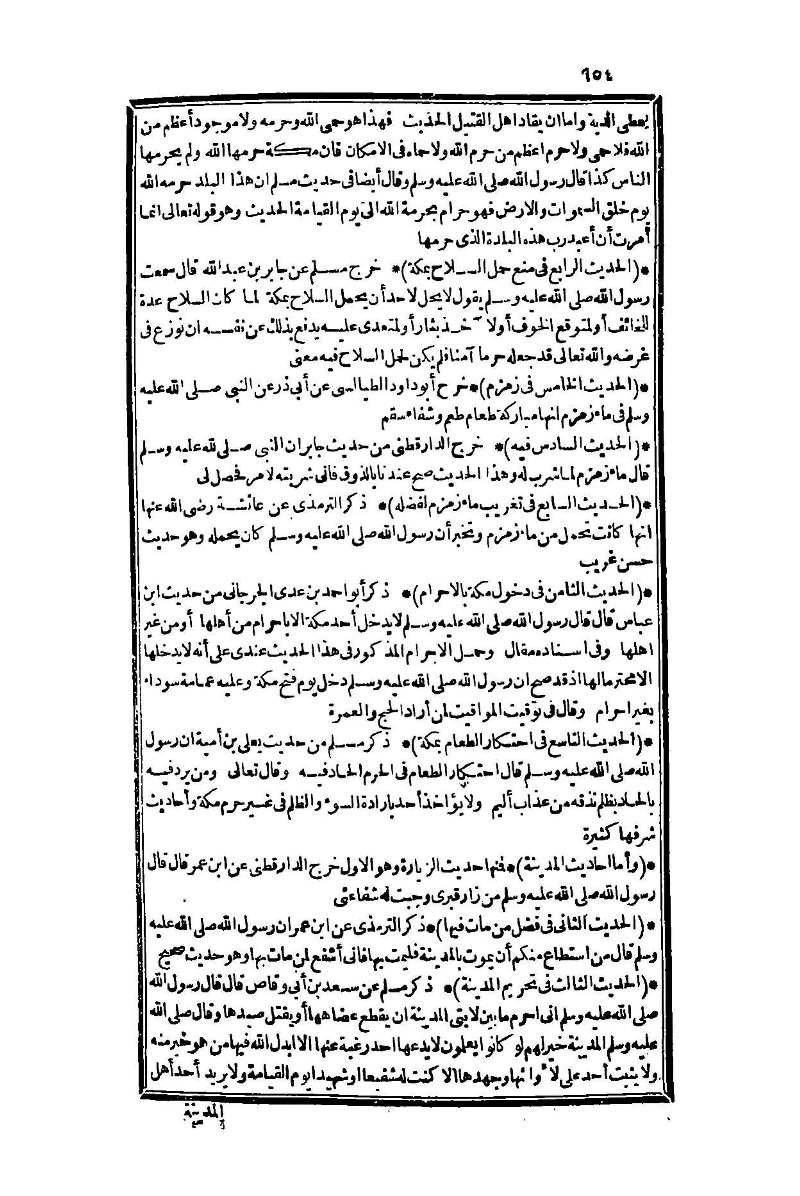 ٦٥٤
يعطى الدية واما ان يقاد اهل القتيل الحديث فهذا هو حمى الله وحرمه ولا موجود أعظم من
الله فلا حمى ولا حرم اعظم من حرم الله ولا حماه فى الامكان فان مكة حرمها الله ولم يحرمها
الناس كذا قال رسول الله صلى الله عليه وسلم وقال أيضا فى حديث مسلم ان هذا البلد حرمه الله
يوم خلق السموات والارض فهو حرام بحرمة الله الى يوم القيامة الحديث وهو قوله تعالى انما
أمرت أن أعبد رب هذه البلدة الذى حرمها
*(الحديث الرابع فى منع حمل السلاح بمكة)* خرج مسلم عن جابر بن عبد الله قال سمعت
رسول الله صلى الله عليه وسلم يقول لا يحل لاحد أن يحمل السلاح بمكة لما كان السلاح عدة
للخائف أو لمتوقع الخوف أو لا آخذ بثار أو لمتعدى عليه يدفع بذلك عن نفسه ان نوزع فى
غرضه والله تعالى قد جعله حرما آمنا فلم يكن لحمل السلاح فيه معنى
*(الحديث الخامس فى زمزم)* خرج أبو داود الطيالسى عن أبى ذر عن النبى صلى الله عليه
وسلم فى ماء زمزم انها مباركة طعام طعم وشفاء سقم
*(الحديث السادس فيه)* خرج الدارقطنى من حديث جابر ان النبى صلى لله عليه وسلم
قال ماء زمزم لما شرب له وهذا الحديث صح عندنا بالذوق فانى شربته لامر فحصل لى
*(الحديث السابع فى تغريب ماء زمزم لفضله)* ذكر الترمذى عن عائشة رضى الله عنها
انها كانت تحمل من ماء زمزم وتخبر أن رسول الله صلى الله عليه وسلم كان يحمله وهو حديث
حسن غريب
*(الحديث الثامن فى دخول مكة بالاحرام)* ذكر أبو احمد بن عدى الجرجانى من حديث ابن
عباس قال قال رسول الله صلى الله عليه وسلم لا يدخل أحد مكة الا باحرام من أهلها أو من غير
اهلها وفى اسناده مقال وحمل الاحرام المذكور فى هذا الحديث عندى على أنه لا يدخلها
الا محترما لها اذ قد صح ان رسول الله صلى الله عليه وسلم دخل يوم فتح مكة وعليه عمامة سوداء
بغير احرام وقال فى توقيت المواقيت لمن أراد الحج والعمرة
*(الحديث التاسع فى احتكار الطعام بمكة)* ذكر مسلم من حديث يعلى بن أمية ان رسول
الله صلى الله عليه وسلم قال احتكار الطعام فى الحرم الحاد فيه وقال تعالى ومن يرد فيه
بالحاد بظلم نذقه من عذاب أليم ولا يؤاخذ أحد بارادة السوء والظلم فى غير حرم مكة وأحاديث
شرفها كثيرة
*(وأما احاديث المدينة)* فنها حديث الزيارة وهو الاول خرج الدارقطنى عن ابن عمر قال قال
رسول الله صلى الله عليه وسلم من زار قبرى وجبت له شفاعتى
*(الحديث الثانى فى فضل من مات فيها)* ذكر الترمذى عن ابن عمر ان رسول الله صلى الله عليه
وسلم قال من استطاع منكم أن يموت بالمدينة فليمت بها فانى أشفع لمن مات بها وهو حديث صحيح
*(الحديث الثالث فى تحريم المدينة)* ذكر مسلم عن سعد بن أبى وقاص قال قال رسول الله
صلى الله عليه وسلم انى احرم ما بين لابتى المدينة ان يقطع عضاهها أو يقتل صيدها وقال صلى الله
عليه وسلم المدينة خير لهم لو كانوا يعلمون لا يدعها احد رغبة عنها الا ابدل الله فيها من هو خير منه
ولا يثبت أحد على لأوائها وجهدها الا كنت له شفيعا او شهيدا يوم القيامة ولا يريد أحد أهل
المدينة